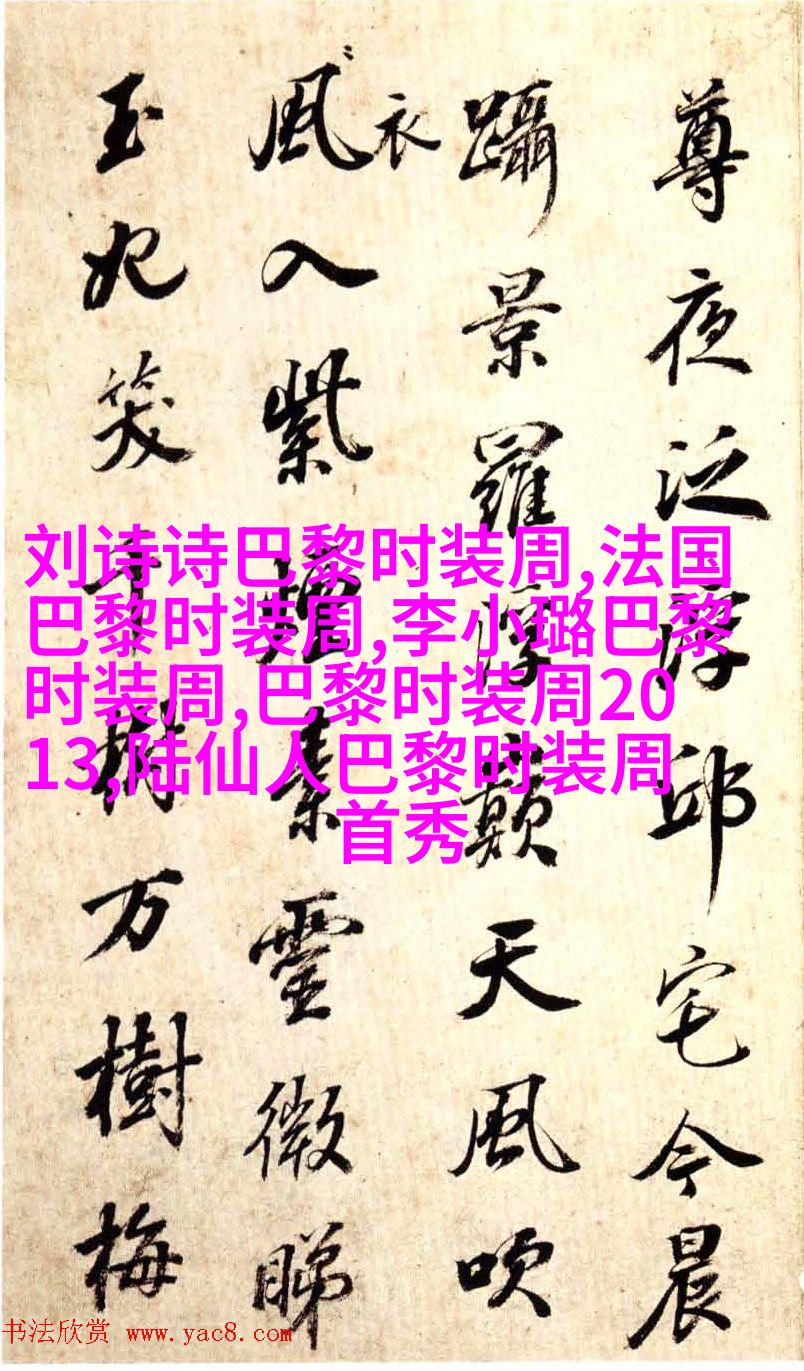 尊夜泛浮邱宅今晨
躡景羅浮巔天風吹
衣
風入紫煙素靈微睇
玉妃笑千樹万樹梅
刘诗诗巴黎时装周,法国
巴黎时装周,李小璐巴黎
时装周,巴黎时装周20
13,陆仙人巴黎时装周
首秀
书法欣赏 www.yac8.com